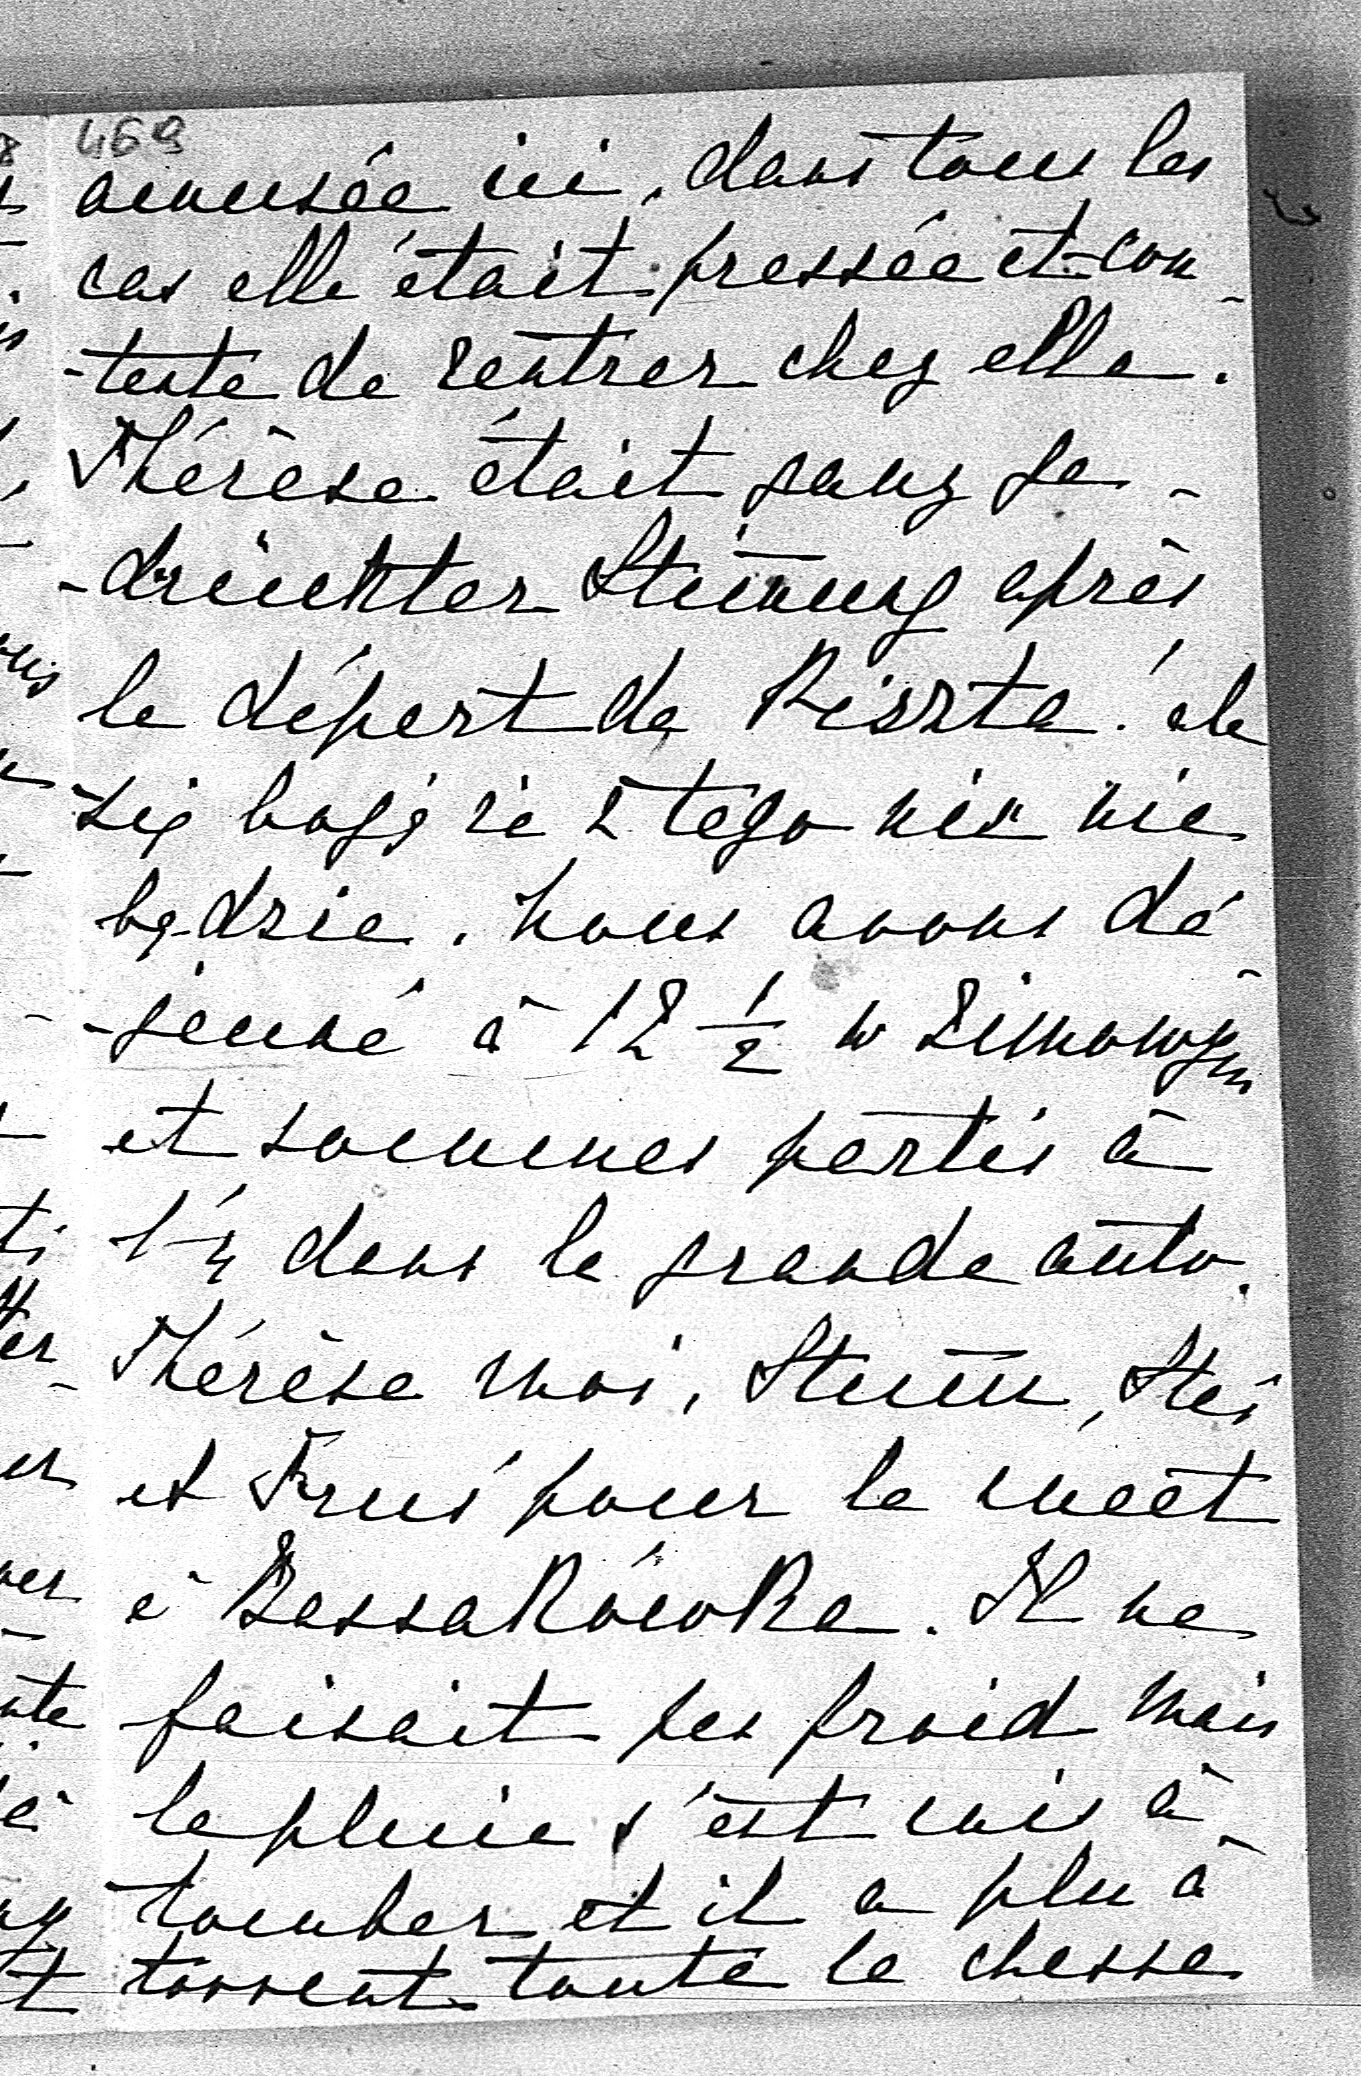 469
amusée ici, dans tous les
cas elle était pressée et con-
-tente de rentrer chez elle.
Thérèse était ganz ge-
-drückter Stimmung après
le départ de Riszta! ale
się boję że z tego nic nie
będzie. Nous avons dé-
-jeuné à 12 1/2 w Zimowym
et sommes partis à
1 1/4 dans la grande auto.
Thérèse moi, Stumm, Stás
et Fruś pour le meet
à BessaRówRa. Il ne
faisait pas froid mais
la pluie s'est mis à
tomber et il a plu à
torrent toute la chasse